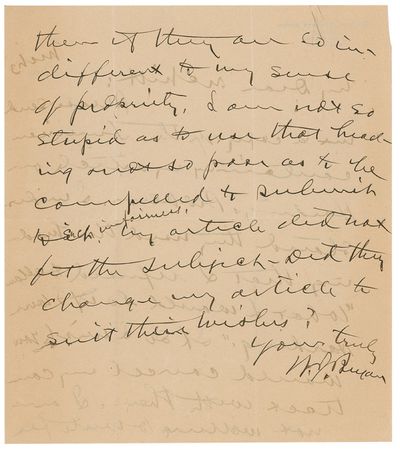 them if they are so in-
different to my sense
of propriety. I am not so
stupid as to use that head-
ing & not so poor as to be
compelled to submit
to such unfairness. My article did not
fit the subject - Did they
change my article to
suit their wishes?
Yours truly
W. J. Bryan